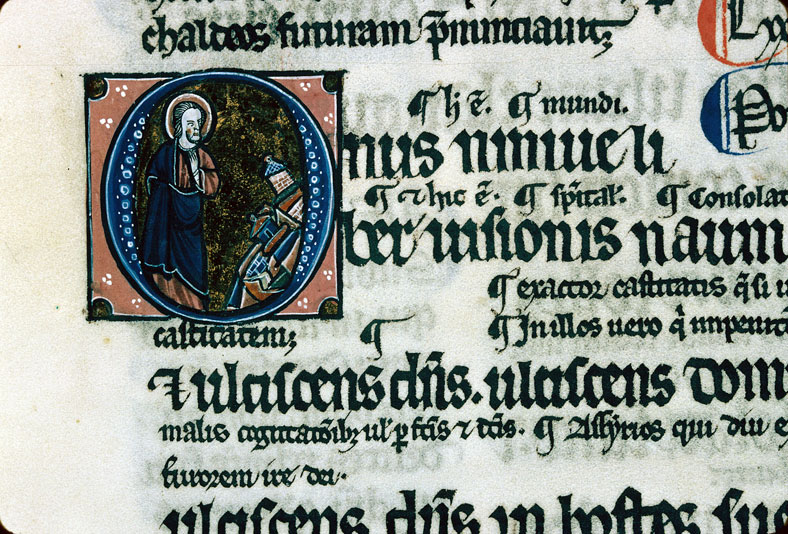 chaldeos futuram p̄nunciauit;
Lxx
¶ hͥ ē. ¶ mundi.
Po
Onus niniue li
¶ ⁊ hic ē. ¶ sp̄ital. ¶ Consolat
ber uisionis naum
¶ exactor castitatis q̄si u
castitatem; ¶ ¶ In illos uero q̄ inpenit
⁊ ulciscens dn̄s. ulciscens dom
malis cogitatōibꝫ ul̓ p̱ f̄cis ⁊ d̄cis. ¶ Assyrios qui diu e
furorem ire dei.
ulciscens dn̄s in hostes suo